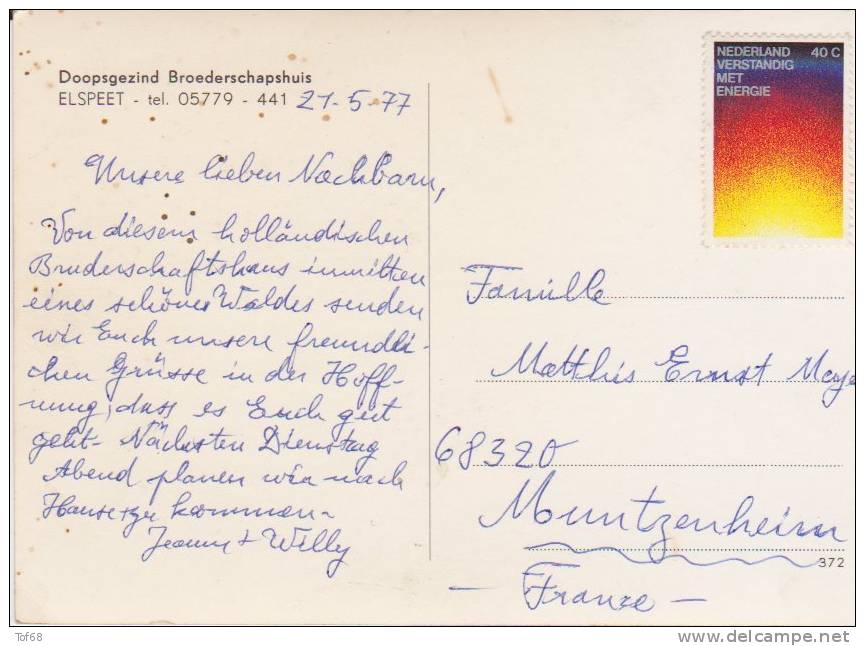 Doopsgezind Broederschapshuis
ELSPEET - tel. 05779 - 441 21-5-77
Unsere lieben Nachbarn,
Von diesem holländischen
Bruderschaftshaus inmitten
eines schönes Waldes senden
wir Euch unsere freundli-
chen Grüsse in der Hoff-
nung, dass es Euch gut
geht- Nächsten Dienstag
Abend planen wir nach
Hause zu kommen-
Jeanny + Willy
NEDERLAND 40 C
VERSTANDIG
MET
ENERGIE
Famille
Matthis Ernst
68320
Muntzenheim
372
- France -
Tof68